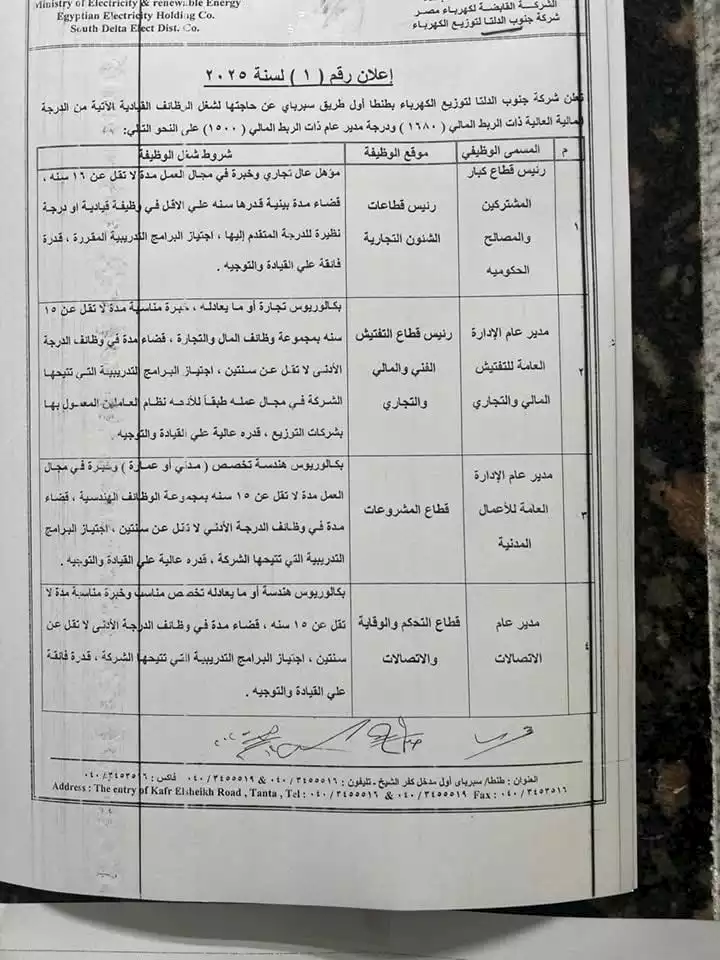 Ministry of Electricity & renewable Energy
Egyptian Electricity Holding Co.
South Delta Elect Dist. Co.
الشركة القابضة لكهرباء مصر
شركة جنوب الدلتا لتوزيع الكهرباء
إعلان رقم ( ١ ) لسنة ٢٠٢٥
تعلن شركة جنوب الدلتا لتوزيع الكهرباء بطنطا أول طريق سبرباي عن حاجتها لشغل الوظائف القيادية الآتية من الدرجة
المالية العالية ذات الربط المالي ( ١٦٨٠ ) ودرجة مدير عام ذات الربط المالي ( ١٥٠٠ ) على النحو التالي:
م
المسمى الوظيفي
موقع الوظيفة
شروط شغل الوظيفة
١
رئيس قطاع كبار
المشتركين
والمصالح
الحكوميه
رئيس قطاعات
الشئون التجارية
مؤهل عال تجاري وخبرة في مجال العمل مدة لا تقل عن ١٦ سنه ،
قضاء مدة بينية قدرها سنه علي الاقل في وظيفة قيادية او درجة
نظيرة للدرجة المتقدم إليها ، اجتياز البرامج التدريبية المقررة ، قدرة
فائقة علي القيادة والتوجيه .
٢
مدير عام الإدارة
العامة للتفتيش
المالي والتجاري
رئيس قطاع التفتيش
الفني والمالي
والتجاري
بكالوريوس تجارة أو ما يعادله ، خبرة مناسبة مدة لا تقل عن ١٥
سنه بمجموعة وظائف المال والتجارة ، قضاء مدة في وظائف الدرجة
الأدنى لا تقل عن سنتين ، اجتياز البرامج التدريبية التى تتيحها
الشركة في مجال عمله طبقاً للائحه نظام العاملين المعمول بها
بشركات التوزيع ، قدره عالية علي القيادة والتوجيه .
٣
مدير عام الإدارة
العامة للأعمال
المدنية
قطاع المشروعات
بكالوريوس هندسة تخصص ( مدني أو عمارة ) وخبرة في مجال
العمل مدة لا تقل عن ١٥ سنه بمجموعة الوظائف الهندسية ، قضاء
مدة في وظائف الدرجة الأدني لا تقل عن سنتين ، اجتياز البرامج
التدريبية التي تتيحها الشركة ، قدره عالية علي القيادة والتوجيه .
٤
مدير عام
الاتصالات
قطاع التحكم والوقاية
والاتصالات
بكالوريوس هندسة أو ما يعادله تخصص مناسب وخبرة مناسبة مدة لا
تقل عن ١٥ سنه ، قضاء مدة في وظائف الدرجة الأدنى لا تقل عن
سنتين ، اجتياز البرامج التدريبية التي تتيحها الشركة ، قدرة فائقة
علي القيادة والتوجيه .
العنوان : طنطا/ سبرباى أول مدخل كفر الشيخ - تليفون : ٠٤٠/٣٤٥٥٥١٦ & ٠٤٠/٣٤٥٥٥١٩ فاكس : ٠٤٠/٣٤٥٣٥١٦
Address : The entry of Kafr Elsheikh Road , Tanta , Tel : ٠٤٠/٣٤٥٥٥١٦ & ٠٤٠/٣٤٥٥٥١٩ Fax : ٠٤٠/٣٤٥٣٥١٦